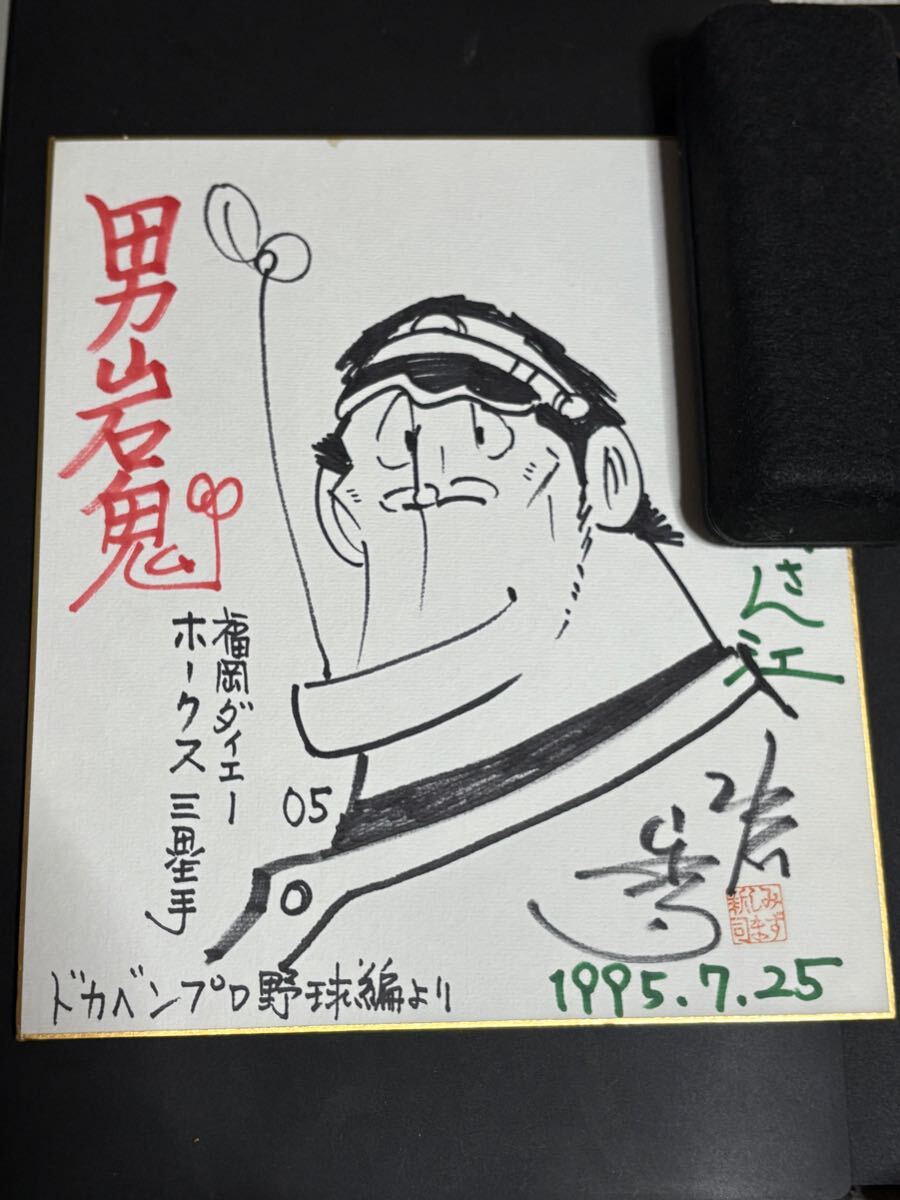 男岩鬼
福岡ダイエー
ホークス三塁手
05
さん江
みずしま
新司
ドカベンプロ野球編より
1995.7.25